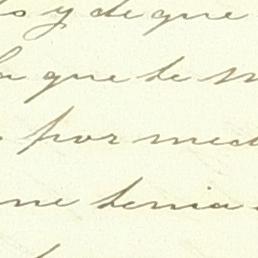 y de que
que te
por med
ne tenia